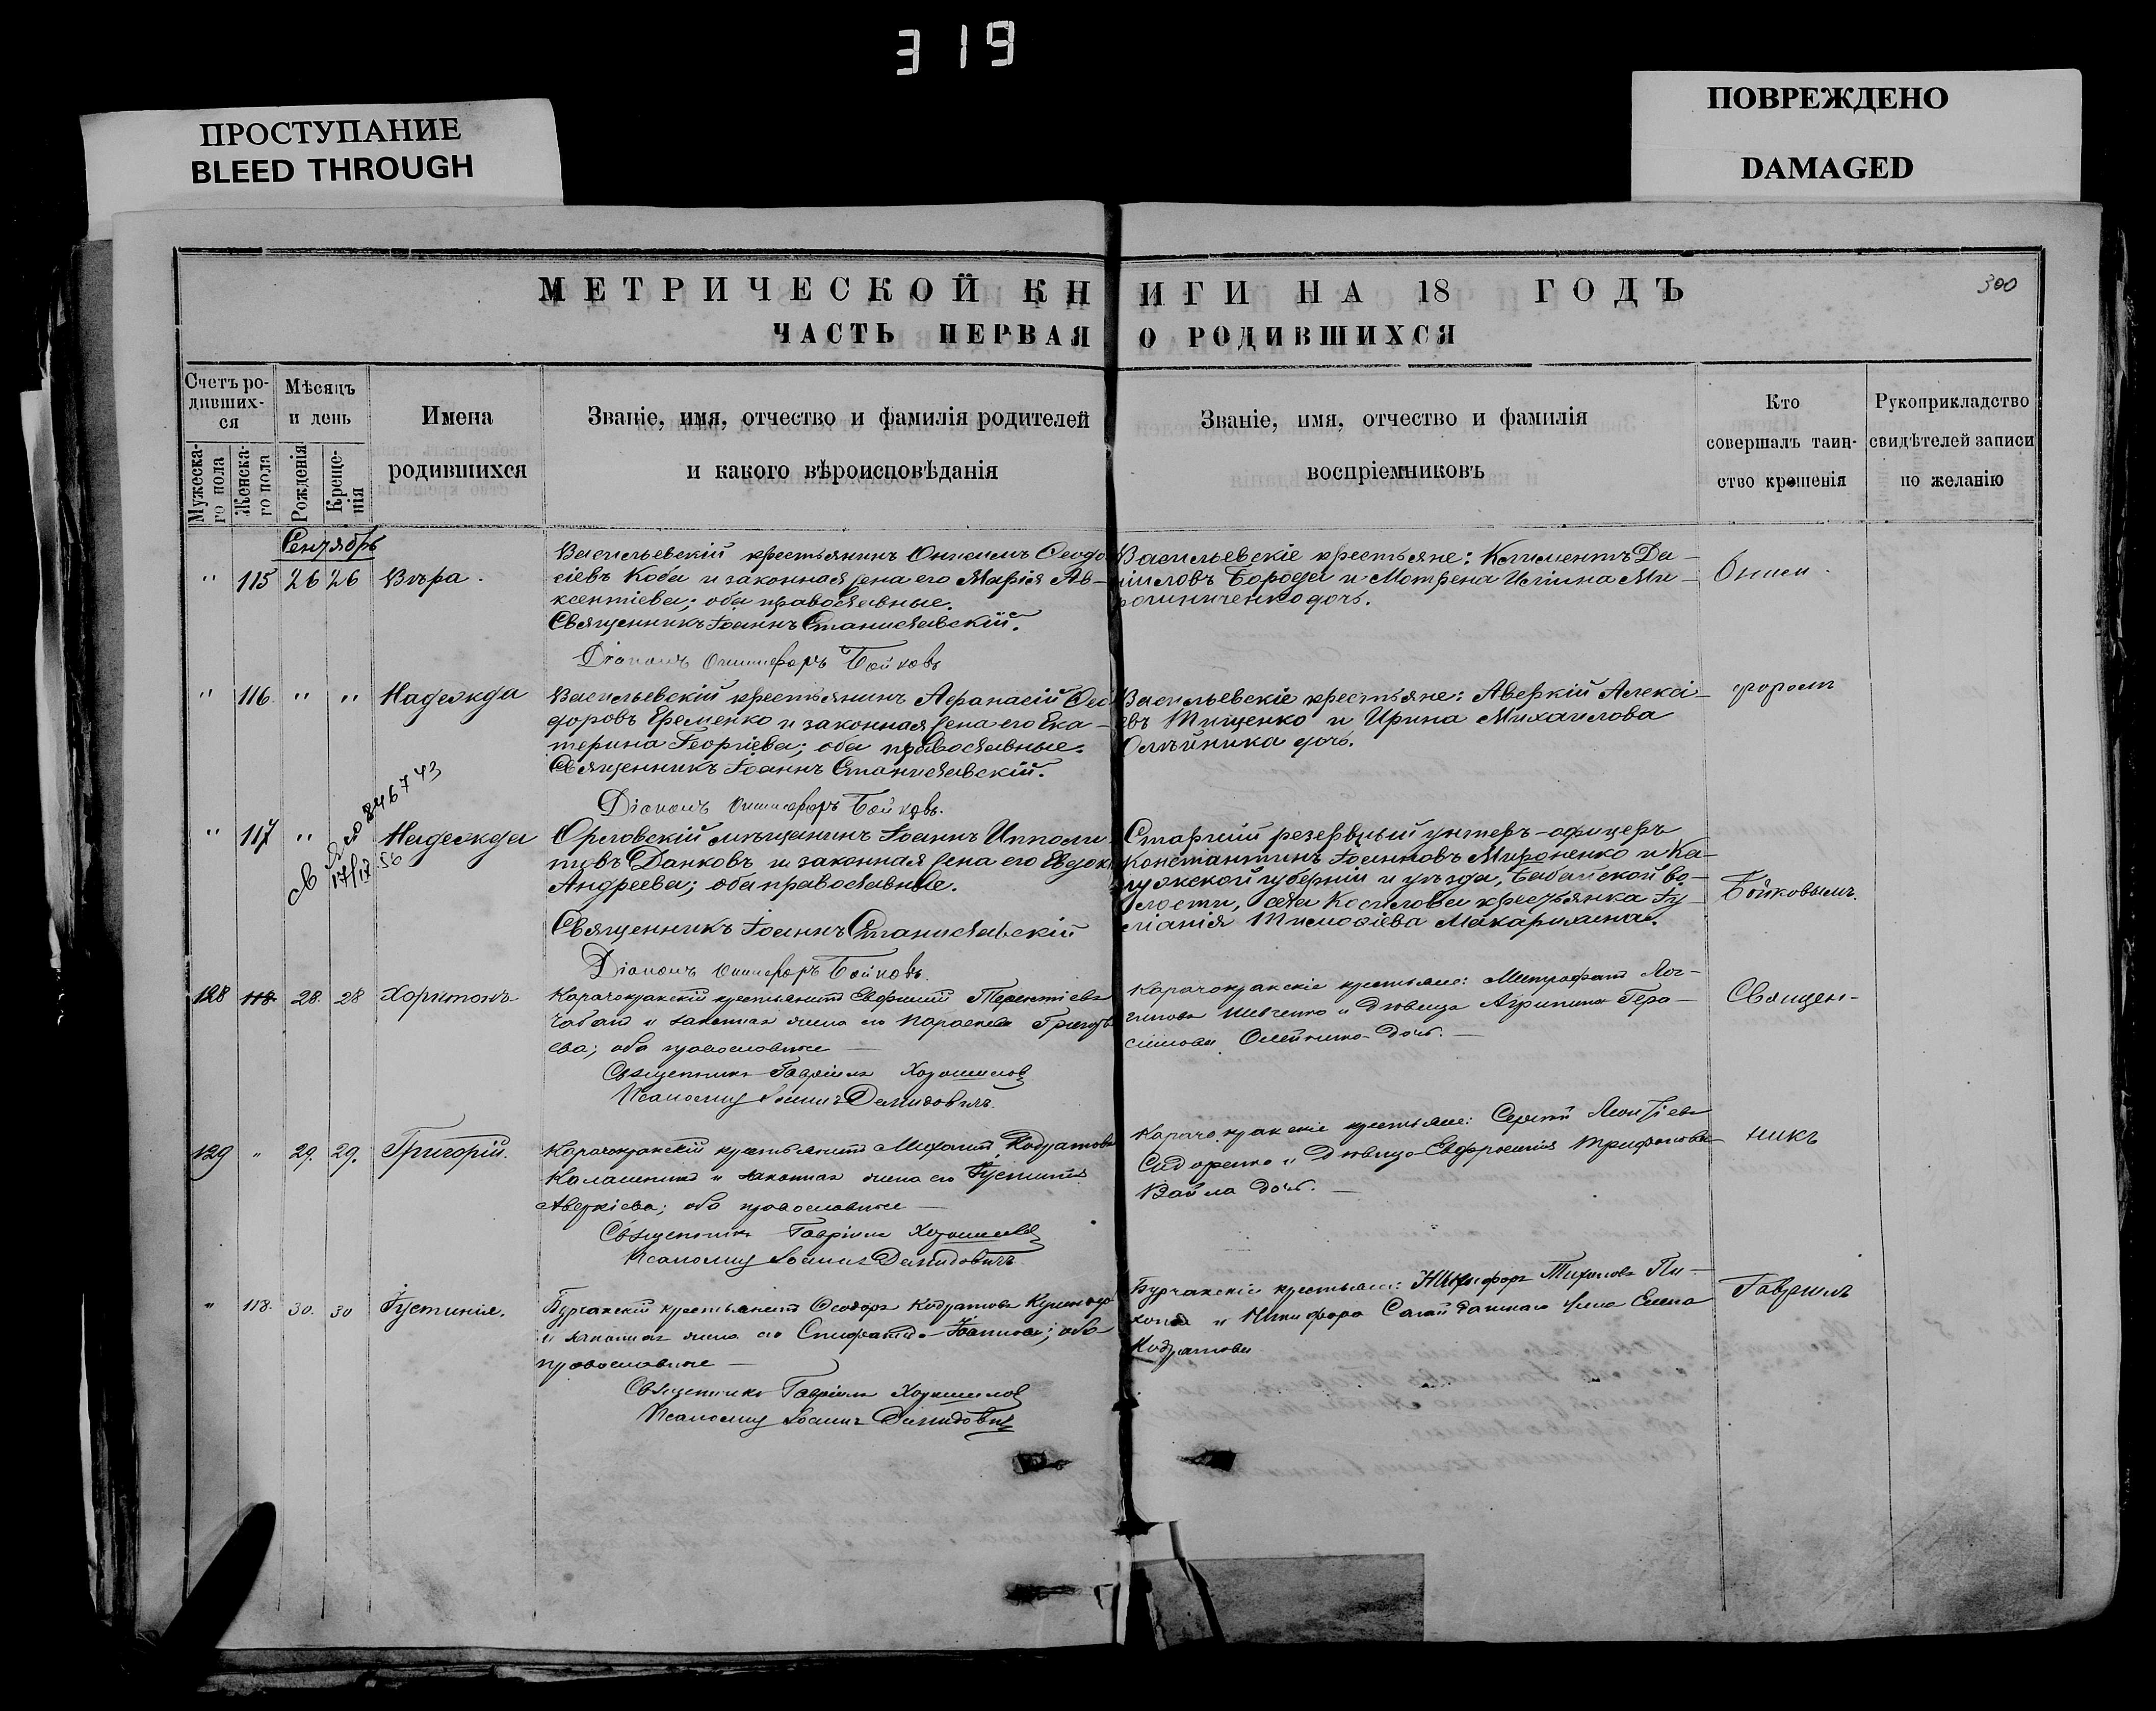 319
ПРОСТУПАНИЕ
BLEED THROUGH
ПОВРЕЖДЕНО
DAMAGED
МЕТРИЧЕСКОЙ КНИГИ НА 18 ГОДЪ
300
ЧАСТЬ ПЕРВАЯ О РОДИВШИХСЯ
Счетъ ро-
дивших-
ся
Мужеска-
го пола
Женска-
го пола
Мѣсяцъ
и день
Рожденія
Креще-
нія
Имена
родившихся
Званіе, имя, отчество и фамилія родителей
и какого вѣроисповѣданія
Званіе, имя, отчество и фамилія
воспріемниковъ
Кто
совершалъ таин-
ство крещенія
Рукоприкладство
свидѣтелей записи
по желанію
Сентябрь
" 115 26 26 Вѣра.
Васильевскій крестьянинъ Онисимъ Ѳеодо
сіевъ Коба и законная жена его Марія Ав-
ксентіева; оба православные.
Священникъ Іоаннъ Станиславскій.
Діаконъ Онисифоръ Бойковъ
Васильевскіе крестьяне: Климентъ Да-
ніиловъ Борода и Мотрена Ильина Ми-
рошниченко дочь.
Ониси-
" 116 " " Надежда
Васильевскій крестьянинъ Афанасій Ѳео
доровъ Еременко и законная жена его Ека-
терина Георгіева; оба православные.
Священникъ Іоаннъ Станиславскій.
Діаконъ Онисифоръ Бойковъ.
Васильевскіе крестьяне: Аверкій Алексі-
евъ Тищенко и Ирина Михаилова
Олѣйника дочь.
форомъ
" 117 " Надежда
846743
17/IX 56
Орловскій мѣщанинъ Іоаннъ Ипполи
товъ Данковъ и законная жена его Евдокі
Андреева; оба православные.
Священникъ Іоаннъ Станиславскій
Діаконъ Онисифоръ Бойковъ.
Старшій резервный унтеръ-офицеръ
Константинъ Іоанновъ Мироненко и Ка-
лужской губерніи и уѣзда, Бабынской во-
лости, села Косилова крестьянка Іу-
ліанія Тимоѳіева Макарихина.
Бойковымъ.
128 118 28. 28 Харитонъ
Карачокракскій крестьянинъ Евфимій Терентіевъ
Чабанъ и законная жена его Параскева Григорь
ева; оба православные
Священникъ Гавріилъ Хорошиловъ
Псаломщ Іоаннъ Демидовичъ.
Карачокракскіе крестьяне: Митрофанъ Лог-
гиновъ Шевченко и дѣвица Агрипина Гера-
симова Олейника дочь.
Священ-
129 " 29. 29. Григорій.
Карачокракскій крестьянинъ Михаилъ Кодратовъ
Калашникъ и законная жена его Іустинія
Аверкіева; оба православные
Священникъ Гавріилъ Хорошиловъ
Псаломщ Іоаннъ Демидовичъ
Карачокракскіе крестьяне: Сергій Леонтіевъ
Сидоренко и дѣвица Евфросинія Трифонова
Вайла дочь.
никъ
" 118. 30. 30 Іустинія.
Бурчакскій крестьянинъ Ѳеодоръ Кодратовъ
и законная жена его Іоаннова; оба
православные
Священникъ Гавріилъ Хорошиловъ
Псаломщ Іоаннъ Демидовичъ
Бурчакскіе крестьяне: Никифоръ Тихоновъ Пи-
и Никифора жена Елена
Кодратова
Гавріилъ